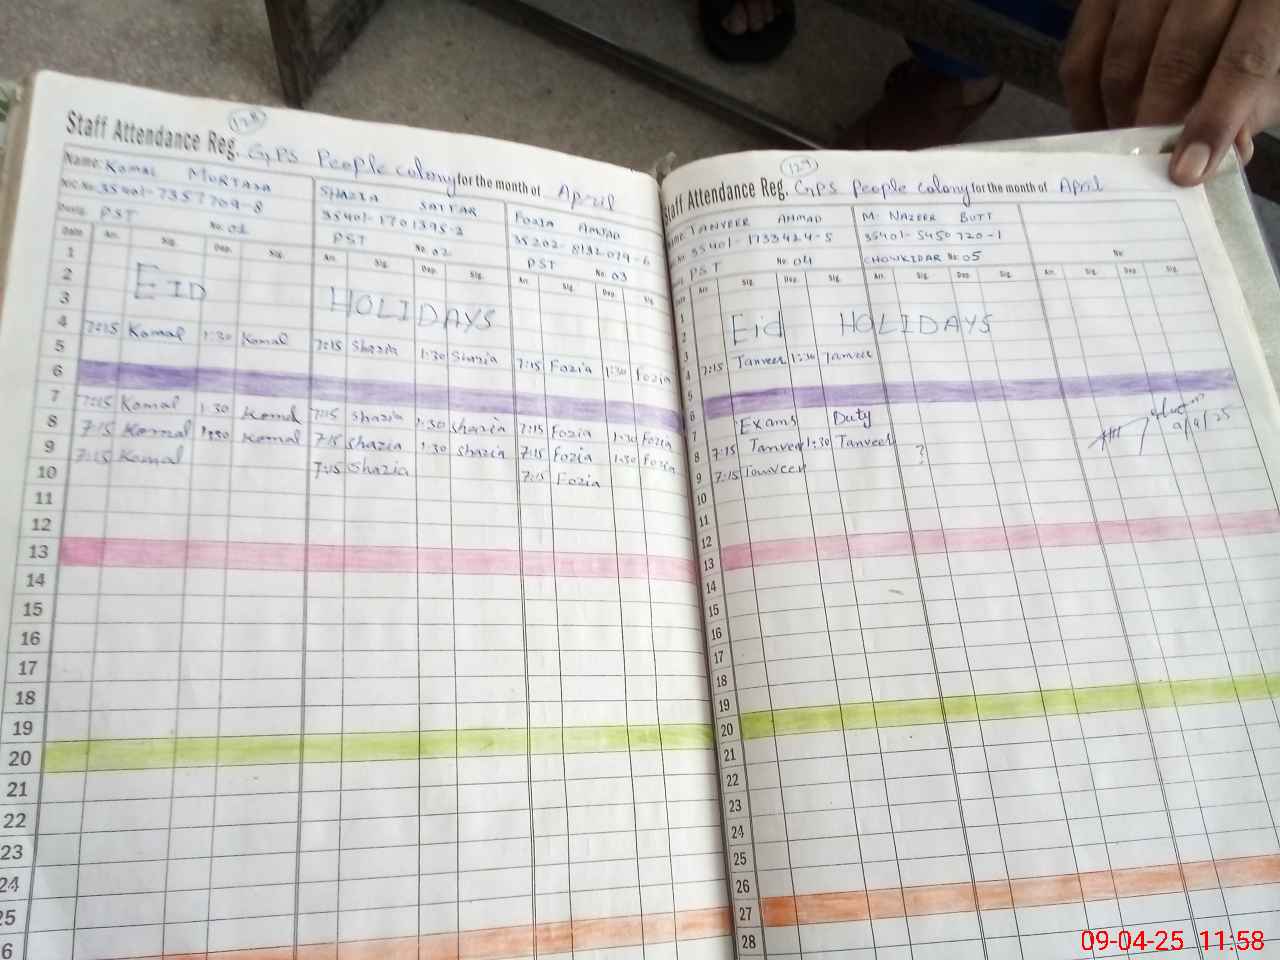 128
Staff Attendance Reg. GPS People colony for the month of April
Name: Komal MURTAZA SHAZIA SATTAR FOZIA AMJAD
NIC No. 35401-7357709-8 35401-1701395-2 35202-8132079-6
Desig. PST No. 01 PST No. 02 PST No. 03
Date Arr. Sig. Dep. Sig. Arr. Sig. Dep. Sig. Arr. Sig. Dep. Sig.
1
2 EID HOLIDAYS
3
4 7:15 Komal 1:30 Komal 7:15 Shazia 1:30 Shazia 7:15 Fozia 1:30 Fozia
5
6
7 7:15 Komal 1:30 Komal 7:15 Shazia 1:30 Shazia 7:15 Fozia 1:30 Fozia
8 7:15 Komal 1:30 Komal 7:15 Shazia 1:30 Shazia 7:15 Fozia 1:30 Fozia
9 7:15 Komal 7:15 Shazia 7:15 Fozia
10
11
12
13
14
15
16
17
18
19
20
21
22
23
24
25
6
129
Staff Attendance Reg. GPS People colony for the month of April
Name: TANVEER AHMAD M. NAZEER BUTT
35401-1733424-5 35401-5450720-1
PST No. 04 CHOWKIDAR No. 05 No.
Date Arr. Sig. Dep. Sig. Arr. Sig. Dep. Sig. Arr. Sig. Dep. Sig.
1
2 Eid HOLIDAYS
3
4 7:15 Tanveer 1:30 Tanveer
5
6
7 Exams Duty
8 7:15 Tanveer 1:30 Tanveer ?
9 7:15 Tanveer
9/4/25
10
11
12
13
14
15
16
17
18
19
20
21
22
23
24
25
26
27
28
09-04-25 11:58